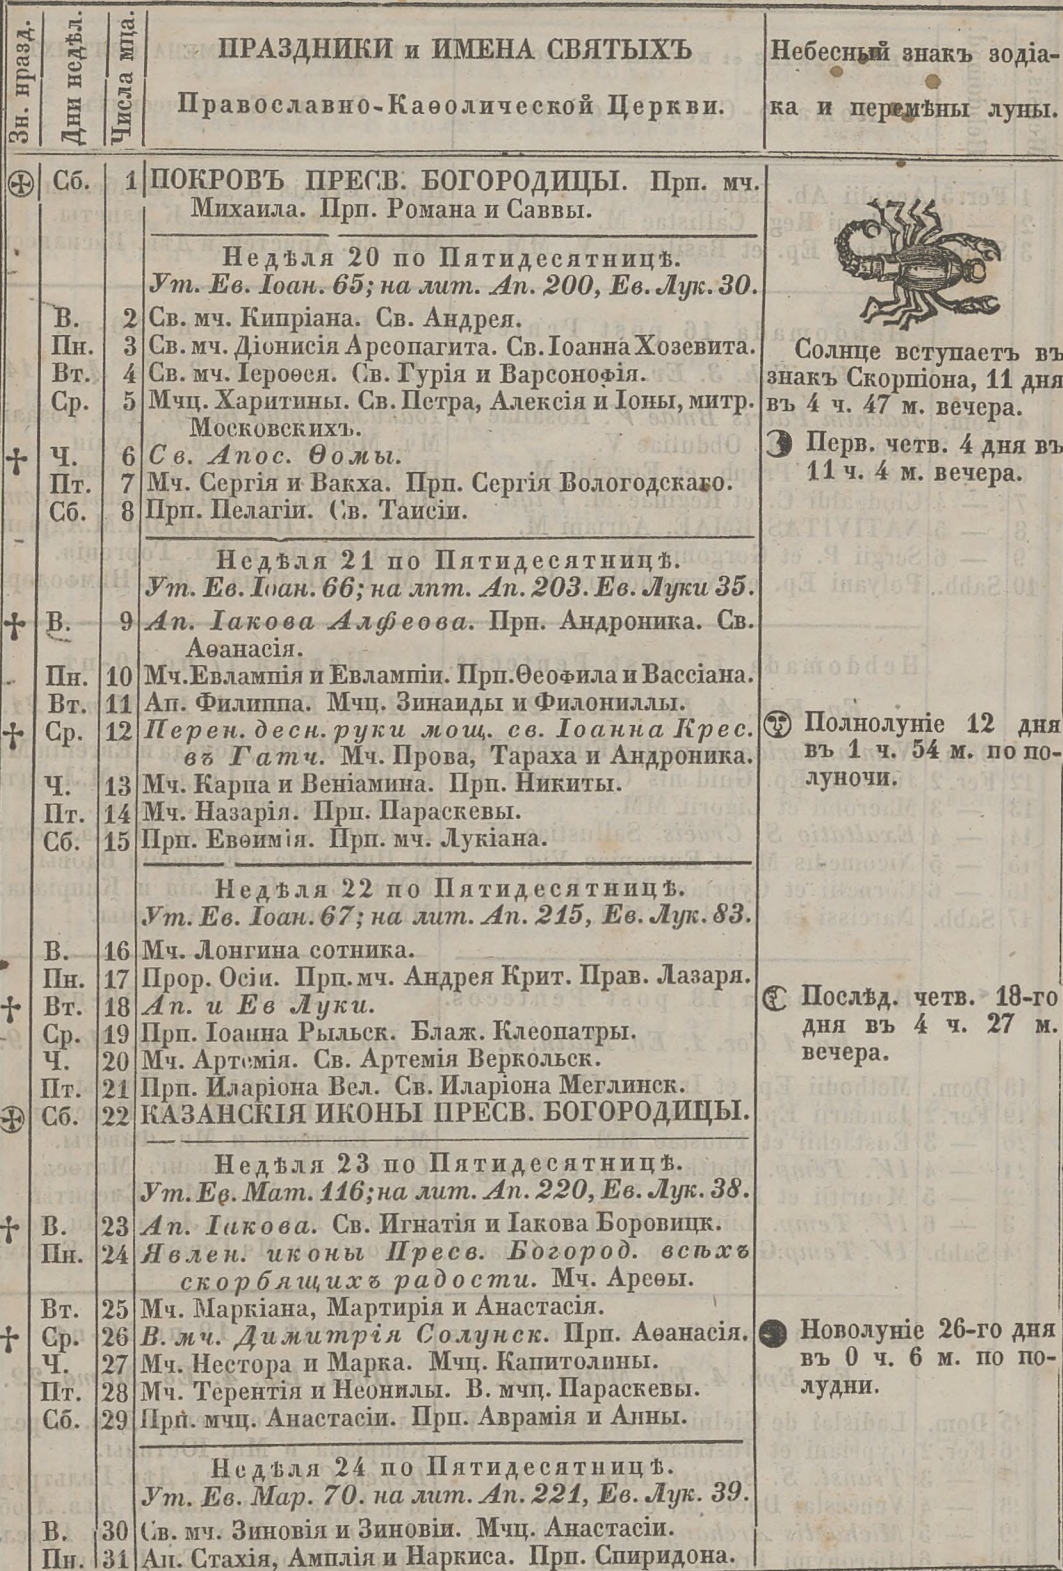 Зн. празд.
Дни недѣл.
Числа мца.
ПРАЗДНИКИ и ИМЕНА СВЯТЫХЪ
Православно-Каѳолической Церкви.
Небесный знакъ зодіа-
ка и перемѣны луны.
Сб. 1 ПОКРОВЪ ПРЕСВ. БОГОРОДИЦЫ. Прп. мч.
Михаила. Прп. Романа и Саввы.
Недѣля 20 по Пятидесятницѣ.
Ут. Ев. Іоан. 65; на лит. Ап. 200, Ев. Лук. 30.
В. 2 Св. мч. Кипріана. Св. Андрея.
Пн. 3 Св. мч. Діонисія Ареопагита. Св. Іоанна Хозевита.
Вт. 4 Св. мч. Іероѳея. Св. Гурія и Варсонофія.
Ср. 5 Мчц. Харитины. Св. Петра, Алексія и Іоны, митр.
Московскихъ.
Ч. 6 Св. Апос. Ѳомы.
Пт. 7 Мч. Сергія и Вакха. Прп. Сергія Вологодскаго.
Сб. 8 Прп. Пелагіи. Св. Таисіи.
Недѣля 21 по Пятидесятницѣ.
Ут. Ев. Іоан. 66; на лит. Ап. 203. Ев. Луки 35.
В. 9 Ап. Іакова Алфеова. Прп. Андроника. Св.
Аѳанасія.
Пн. 10 Мч. Евлампія и Евлампіи. Прп. Ѳеофила и Вассіана.
Вт. 11 Ап. Филиппа. Мчц. Зинаиды и Филониллы.
Ср. 12 Перен. десн. руки мощ. св. Іоанна Крес.
въ Гатч. Мч. Прова, Тараха и Андроника.
Ч. 13 Мч. Карпа и Веніамина. Прп. Никиты.
Пт. 14 Мч. Назарія. Прп. Параскевы.
Сб. 15 Прп. Евѳимія. Прп. мч. Лукіана.
Недѣля 22 по Пятидесятницѣ.
Ут. Ев. Іоан. 67; на лит. Ап. 215, Ев. Лук. 83.
В. 16 Мч. Лонгина сотника.
Пн. 17 Прор. Осіи. Прп. мч. Андрея Крит. Прав. Лазаря.
Вт. 18 Ап. и Ев Луки.
Ср. 19 Прп. Іоанна Рыльск. Блаж. Клеопатры.
Ч. 20 Мч. Артемія. Св. Артемія Веркольск.
Пт. 21 Прп. Иларіона Вел. Св. Иларіона Меглинск.
Сб. 22 КАЗАНСКІЯ ИКОНЫ ПРЕСВ. БОГОРОДИЦЫ.
Недѣля 23 по Пятидесятницѣ.
Ут. Ев. Мат. 116; на лит. Ап. 220, Ев. Лук. 38.
В. 23 Ап. Іакова. Св. Игнатія и Іакова Боровицк.
Пн. 24 Явлен. иконы Пресв. Богород. всѣхъ
скорбящихъ радости. Мч. Ареѳы.
Вт. 25 Мч. Маркіана, Мартирія и Анастасія.
Ср. 26 В. мч. Димитрія Солунск. Прп. Аѳанасія.
Ч. 27 Мч. Нестора и Марка. Мчц. Капитолины.
Пт. 28 Мч. Терентія и Неонилы. В. мчц. Параскевы.
Сб. 29 Прп. мчц. Анастасіи. Прп. Аврамія и Анны.
Недѣля 24 по Пятидесятницѣ.
Ут. Ев. Мар. 70. на лит. Ап. 221, Ев. Лук. 39.
В. 30 Св. мч. Зиновія и Зиновіи. Мчц. Анастасіи.
Пн. 31 Ап. Стахія, Амплія и Наркиса. Прп. Спиридона.
Солнце вступаетъ въ
знакъ Скорпіона, 11 дня
въ 4 ч. 47 м. вечера.
Перв. четв. 4 дня въ
11 ч. 4 м. вечера.
Полнолуніе 12 дня
въ 1 ч. 54 м. по по-
луночи.
Послѣд. четв. 18-го
дня въ 4 ч. 27 м.
вечера.
Новолуніе 26-го дня
въ 0 ч. 6 м. по по-
лудни.